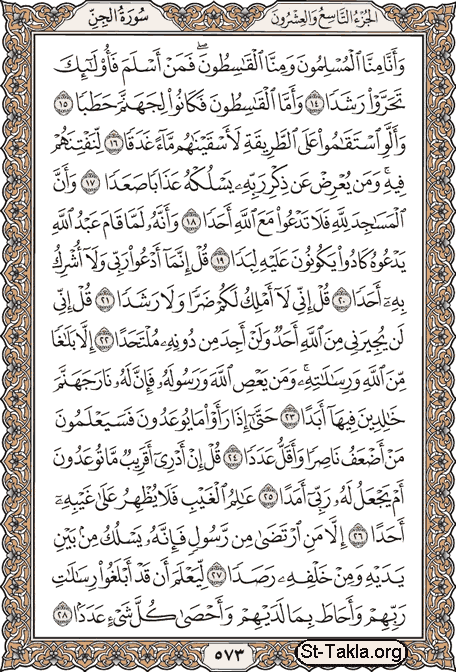 الجزء التاسع والعشرون
سورة الجن
وَأَنَّا مِنَّا الْمُسْلِمُونَ وَمِنَّا الْقَاسِطُونَ ۖ فَمَنْ أَسْلَمَ فَأُولَٰئِكَ
تَحَرَّوْا رَشَدًا ١٤ وَأَمَّا الْقَاسِطُونَ فَكَانُوا لِجَهَنَّمَ حَطَبًا ١٥
وَأَلَّوِ اسْتَقَامُوا عَلَى الطَّرِيقَةِ لَأَسْقَيْنَاهُم مَّاءً غَدَقًا ١٦ لِّنَفْتِنَهُمْ
فِيهِ ۚ وَمَن يُعْرِضْ عَن ذِكْرِ رَبِّهِ يَسْلُكْهُ عَذَابًا صَعَدًا ١٧ وَأَنَّ
الْمَسَاجِدَ لِلَّهِ فَلَا تَدْعُوا مَعَ اللَّهِ أَحَدًا ١٨ وَأَنَّهُ لَمَّا قَامَ عَبْدُ اللَّهِ
يَدْعُوهُ كَادُوا يَكُونُونَ عَلَيْهِ لِبَدًا ١٩ قُلْ إِنَّمَا أَدْعُو رَبِّي وَلَا أُشْرِكُ
بِهِ أَحَدًا ٢٠ قُلْ إِنِّي لَا أَمْلِكُ لَكُمْ ضَرًّا وَلَا رَشَدًا ٢١ قُلْ إِنِّي
لَن يُجِيرَنِي مِنَ اللَّهِ أَحَدٌ وَلَنْ أَجِدَ مِن دُونِهِ مُلْتَحَدًا ٢٢ إِلَّا بَلَاغًا
مِّنَ اللَّهِ وَرِسَالَاتِهِ ۚ وَمَن يَعْصِ اللَّهَ وَرَسُولَهُ فَإِنَّ لَهُ نَارَ جَهَنَّمَ
خَالِدِينَ فِيهَا أَبَدًا ٢٣ حَتَّىٰ إِذَا رَأَوْا مَا يُوعَدُونَ فَسَيَعْلَمُونَ
مَنْ أَضْعَفُ نَاصِرًا وَأَقَلُّ عَدَدًا ٢٤ قُلْ إِنْ أَدْرِي أَقَرِيبٌ مَّا تُوعَدُونَ
أَمْ يَجْعَلُ لَهُ رَبِّي أَمَدًا ٢٥ عَالِمُ الْغَيْبِ فَلَا يُظْهِرُ عَلَىٰ غَيْبِهِ
أَحَدًا ٢٦ إِلَّا مَنِ ارْتَضَىٰ مِن رَّسُولٍ فَإِنَّهُ يَسْلُكُ مِن بَيْنِ
يَدَيْهِ وَمِنْ خَلْفِهِ رَصَدًا ٢٧ لِّيَعْلَمَ أَن قَدْ أَبْلَغُوا رِسَالَاتِ
رَبِّهِمْ وَأَحَاطَ بِمَا لَدَيْهِمْ وَأَحْصَىٰ كُلَّ شَيْءٍ عَدَدًا ٢٨
٥٧٣
St-Takla.org